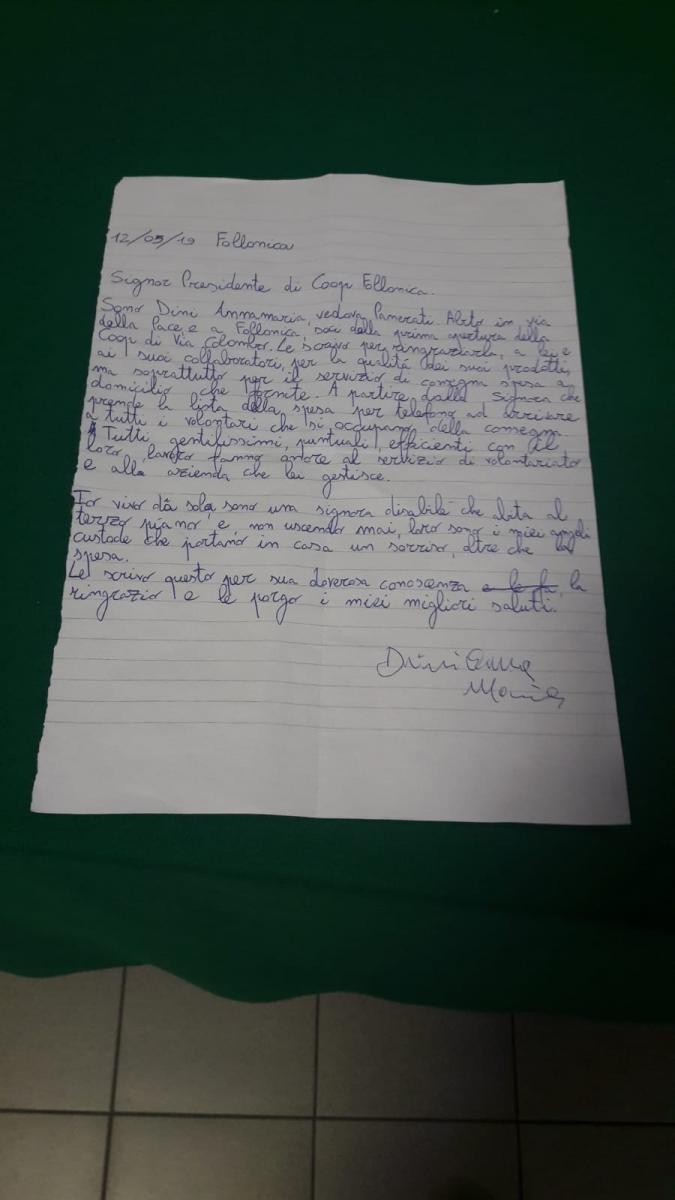 12/05/19 Follonica
Signor Presidente di Coop Follonica.
Sono Dini Annamaria, vedova Pamerati. Abito in via
della Pace, e a Follonica, soci della prima apertura della
Coop di Via Colombo. Le scrivo per ringraziarla, a lei e
ai suoi collaboratori, per la qualità dei suoi prodotti,
ma soprattutto per il servizio di consegna spesa a
domicilio che fornite. A partire dalla Signora che
prende la lista della spesa per telefono ad arrivare
a tutti i volontari che si occupano della consegna.
Tutti gentilissimi, puntuali, efficienti con il
loro lavoro fanno onore al servizio di volontariato
e alla azienda che lei gestisce.
Io vivo da sola, sono una signora disabile che abita al
terzo piano e, non uscendo mai, loro sono i miei angeli
custode che portano in casa un sorriso, oltre che la
spesa.
Le scrivo questo per sua doverosa conoscenza e le fa, la
ringrazio e le porgo i miei migliori saluti.
Dini Anna
Maria